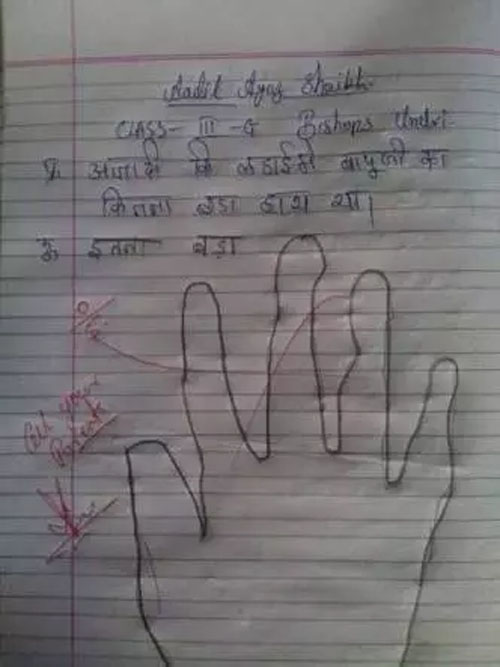 Aadil Ayaz Shaikh
CLASS- III -G Bishops Undri
प्र. आजादी कि लडाईमे बापूजी का
कितना बडा हाथ था।
उ इतना बडा
0/5
Call your
Parents